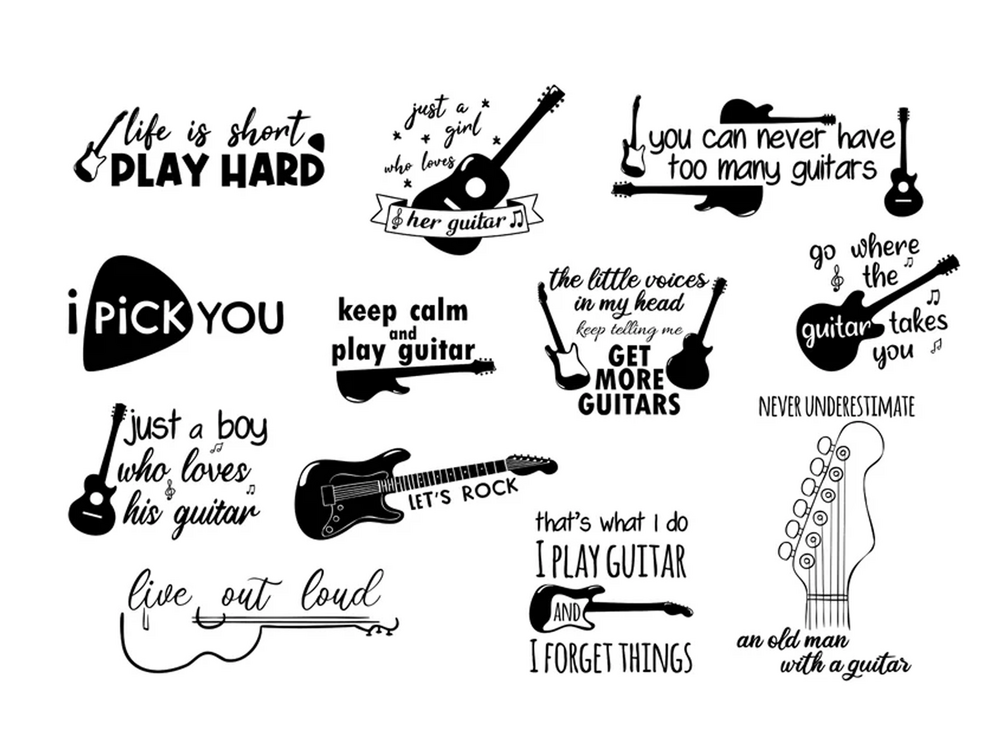 life is short
PLAY HARD
just a
girl
who loves
her guitar
you can never have
too many guitars
i PiCK YOU
keep calm
and
play guitar
the little voices
in my head
keep telling me
GET
MORE
GUITARS
go where
the
guitar takes
you
just a boy
who loves
his guitar
LET'S ROCK
NEVER UNDERESTIMATE
an old man
with a guitar
live out loud
that's what I do
I PLAY GUITAR
AND
I FORGET THINGS